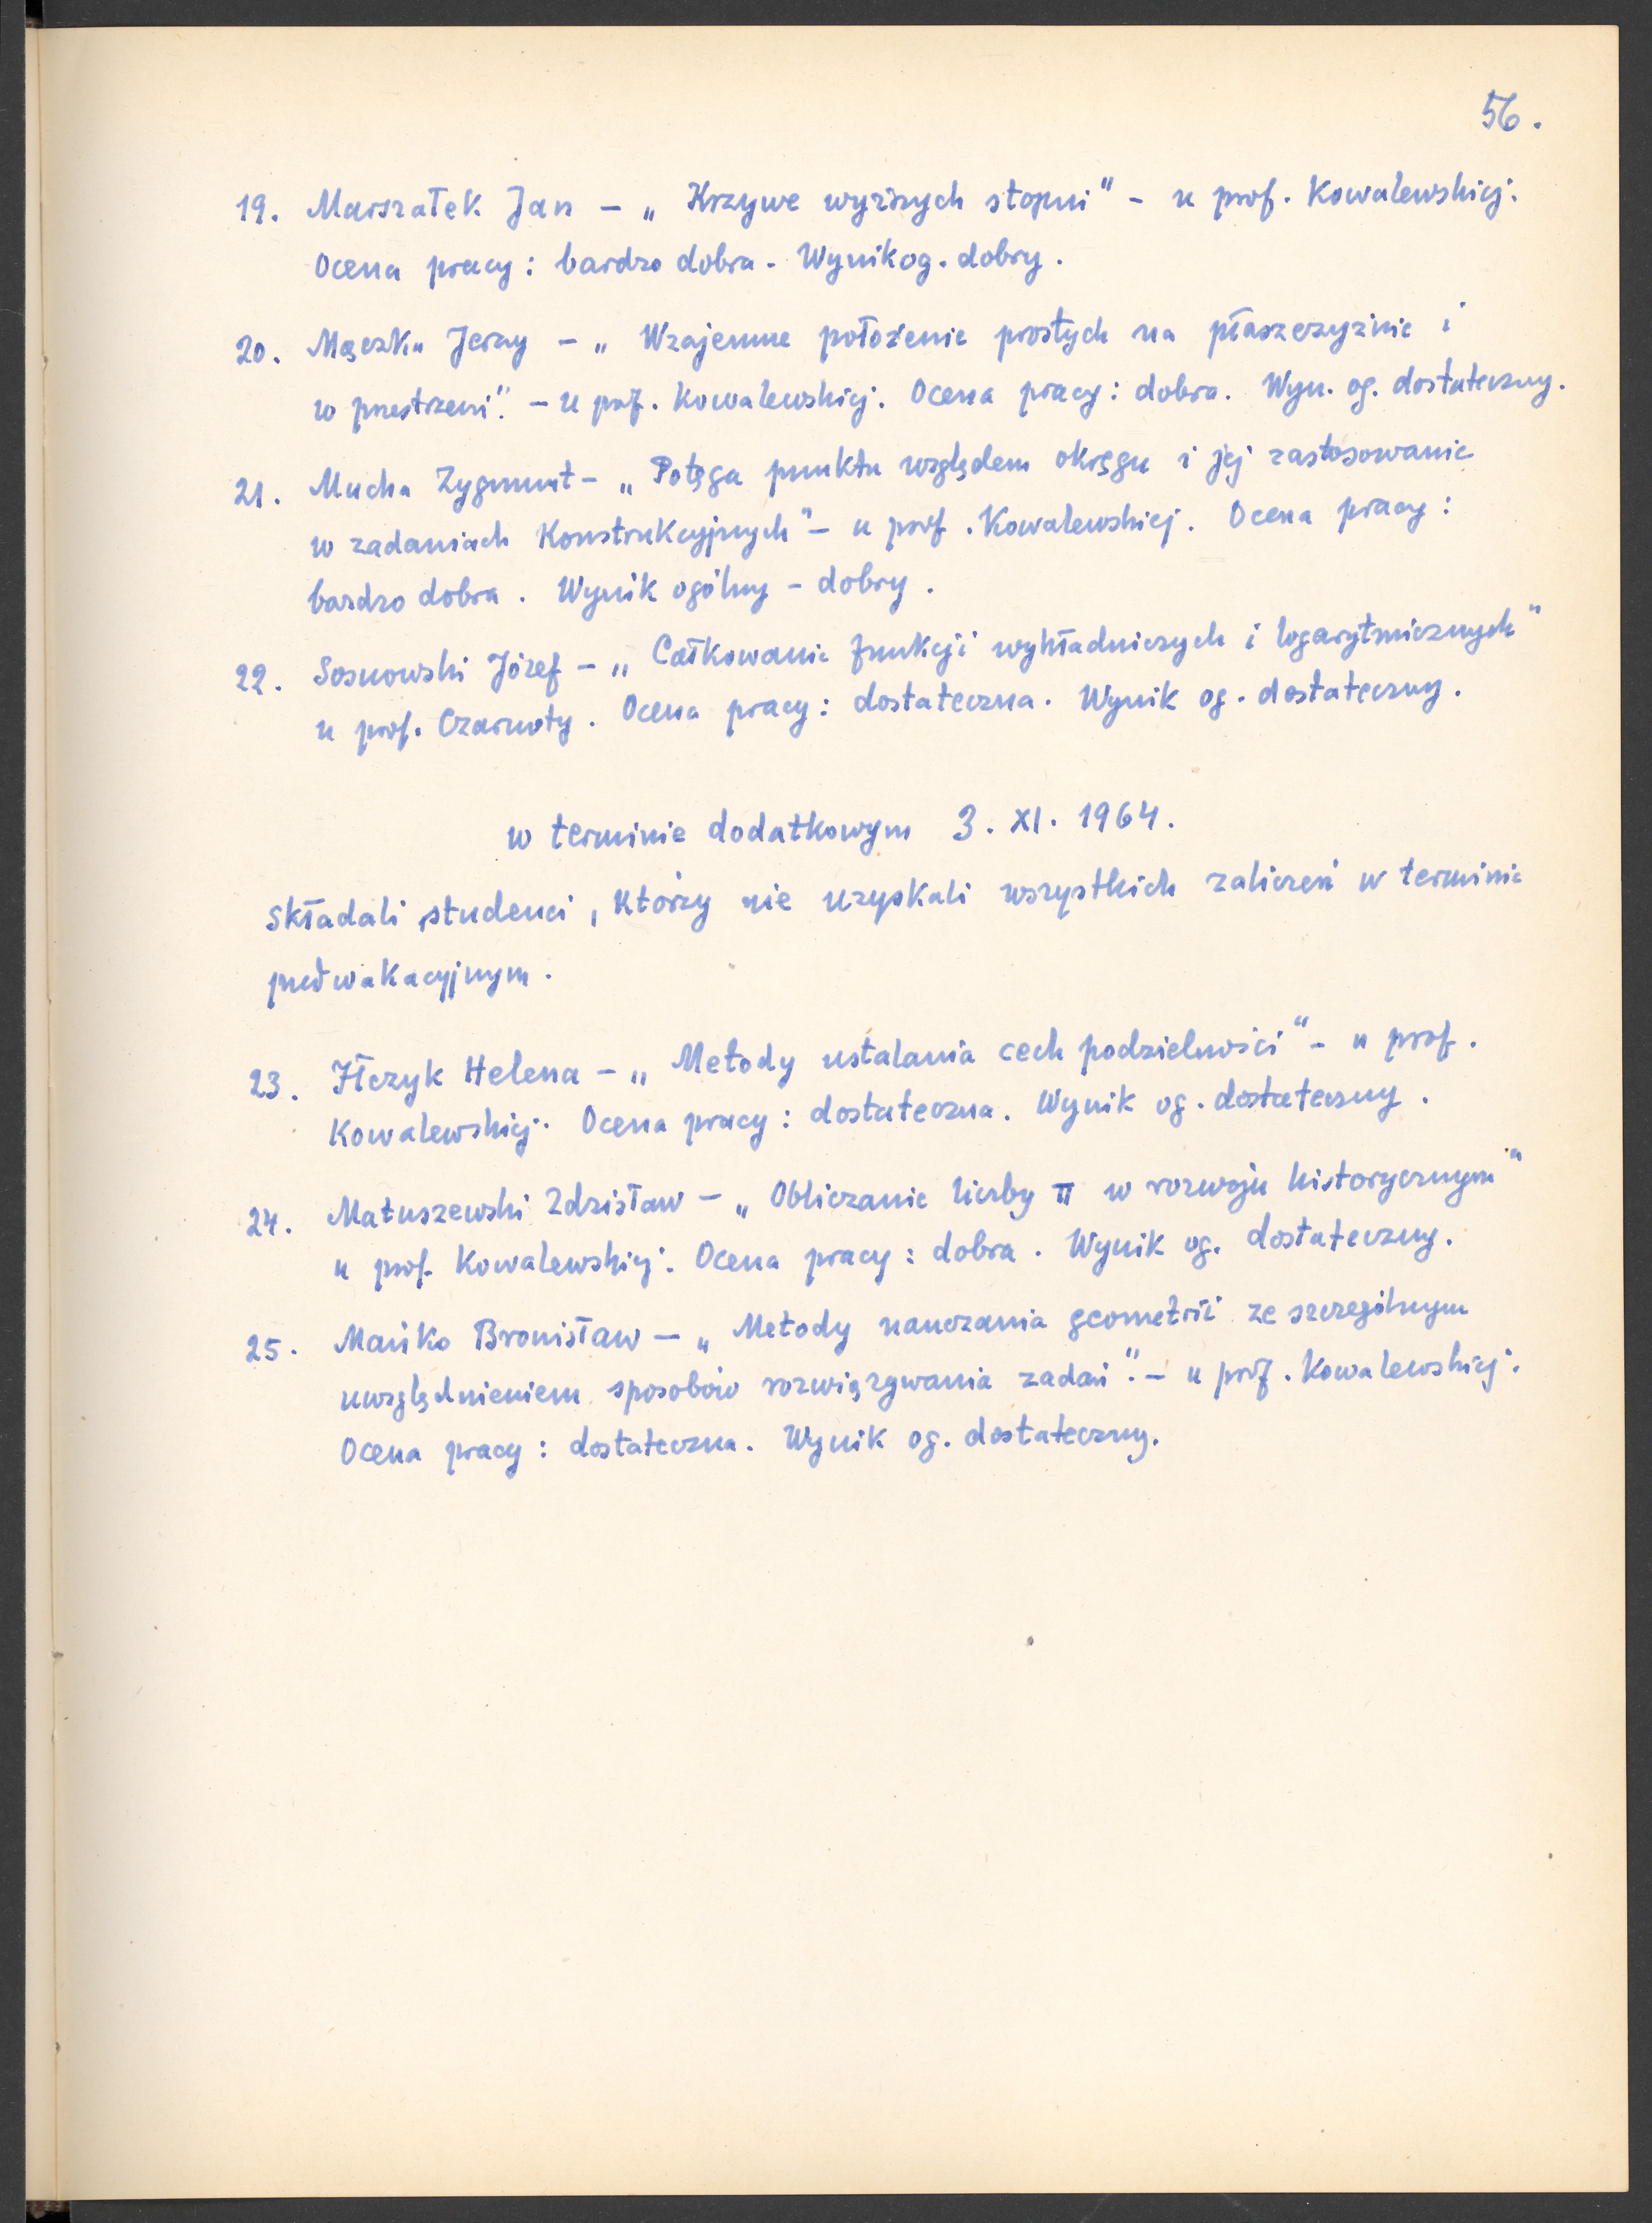 56.
19. Marszałek Jan – „Krzywe wyższych stopni" – u prof. Kowalewskiej.
Ocena pracy: bardzo dobra. Wynik og. dobry.
20. Mączka Jerzy – „Wzajemne położenie prostych na płaszczyźnie i
w przestrzeni". – u prof. Kowalewskiej. Ocena pracy: dobra. Wyn. og. dostateczny.
21. Mucha Zygmunt – „Potęga punktu względem okręgu i jej zastosowanie
w zadaniach konstrukcyjnych" – u prof. Kowalewskiej. Ocena pracy:
bardzo dobra. Wynik ogólny – dobry.
22. Sosnowski Józef – „Całkowanie funkcji wykładniczych i logarytmicznych"
u prof. Czarnoty. Ocena pracy: dostateczna. Wynik og. dostateczny.
w terminie dodatkowym 3. XI. 1964.
składali studenci, którzy nie uzyskali wszystkich zaliczeń w terminie
przedwakacyjnym.
23. Iłczyk Helena – „Metody ustalania cech podzielności" – u prof.
Kowalewskiej. Ocena pracy: dostateczna. Wynik og. dostateczny.
24. Matuszewski Zdzisław – „Obliczanie liczby π w rozwoju historycznym"
u prof. Kowalewskiej. Ocena pracy: dobra. Wynik og. dostateczny.
25. Mańko Bronisław – „Metody nauczania geometrii ze szczególnym
uwzględnieniem sposobów rozwiązywania zadań". – u prof. Kowalewskiej.
Ocena pracy: dostateczna. Wynik og. dostateczny.